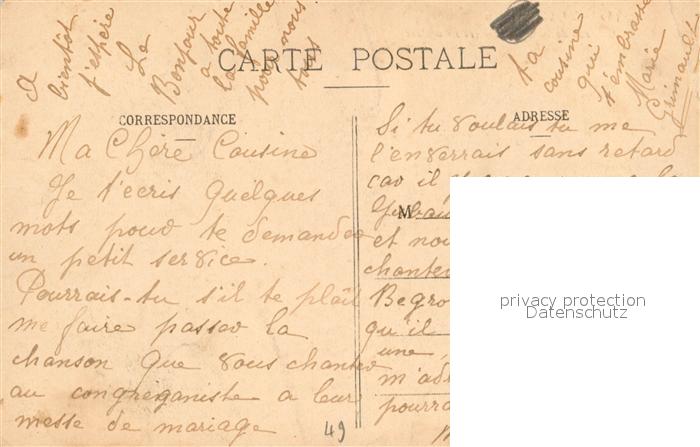 CARTE POSTALE
CORRESPONDANCE
ADRESSE
Ma Chère Cousine
Je t'ecris quelques
mots pour te demander
un petit service.
Pourrais-tu s'il te plait
me faire passer la
chanson que vous chantez
au congreganiste a leur
messe de mariage
49
Si tu voulais tu me
l'enverrais sans retard
car il y
M
et nou
chanter
Begro
qu'il
une,
m'ad
pourra
A
bientôt
j'espère
Le
Bonjour
a toute
la famille
pour nous
tous
ta
cousine
qui
t'embrasse
Marie
Grimault
privacy protection
Datenschutz